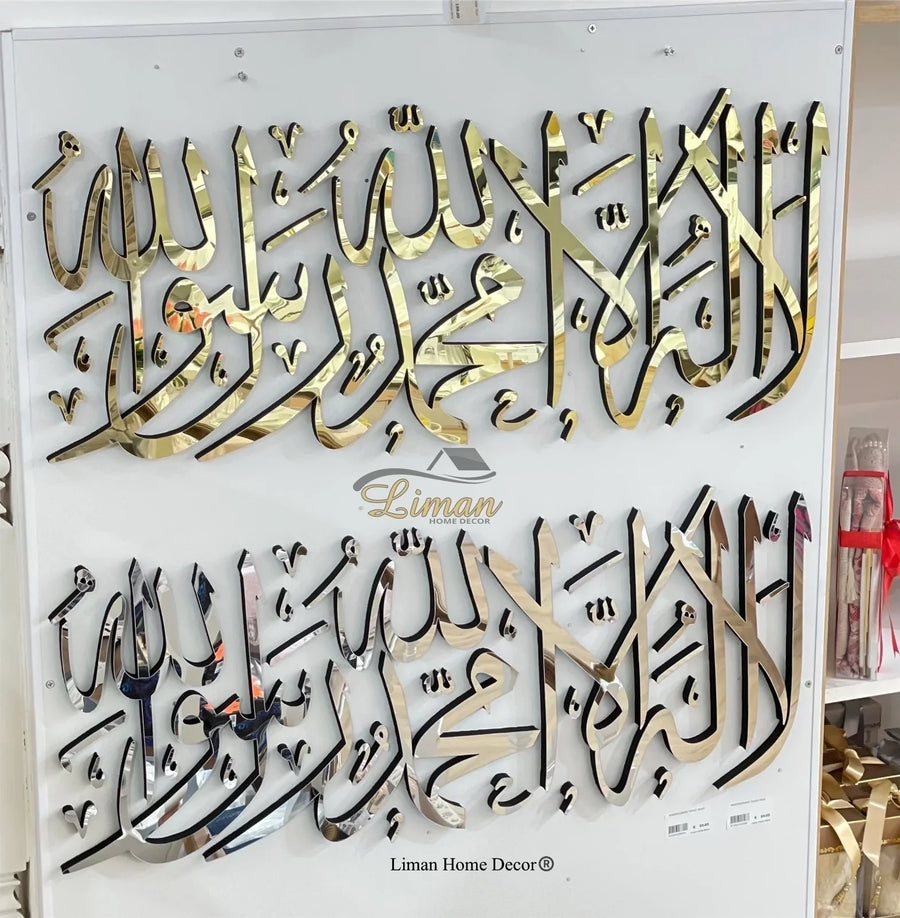 لا إله إلا الله محمد رسول الله
Liman
HOME DECOR
لا إله إلا الله محمد رسول الله
Liman Home Decor®